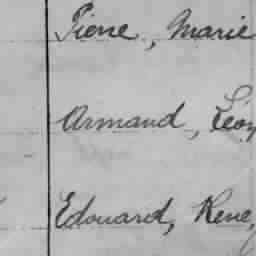 Pierre, Marie
Armand, Léon
Edouard, Rene,